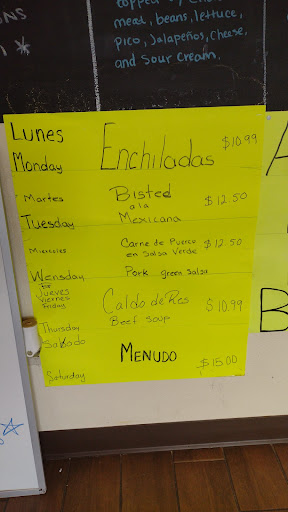 topped
meat, beans, lettuce,
Pico, Jalapeños, Cheese,
and Sour Cream.
Lunes
Monday
Enchiladas $10.99
Martes
Tuesday
Bisted
a la
Mexicana
$12.50
Miercoles
Wensday
Carne de Puerco
en Salsa Verde
$12.50
Pork green Salsa
Jueves
viernes
Friday
Thursday
Caldo de Res
Beef Soup
$10.99
Sabado
Saturday
MENUDO
$15.00
B